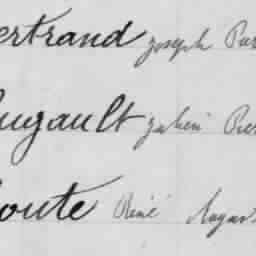 ertrand joseph Pier
ugault julien Pier
oute René August